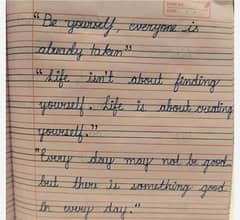 "Be yourself, everyone is
already taken"
"Life isn't about finding
yourself. Life is about creating
yourself."
"Every day may not be good
but there is something good
In every day."